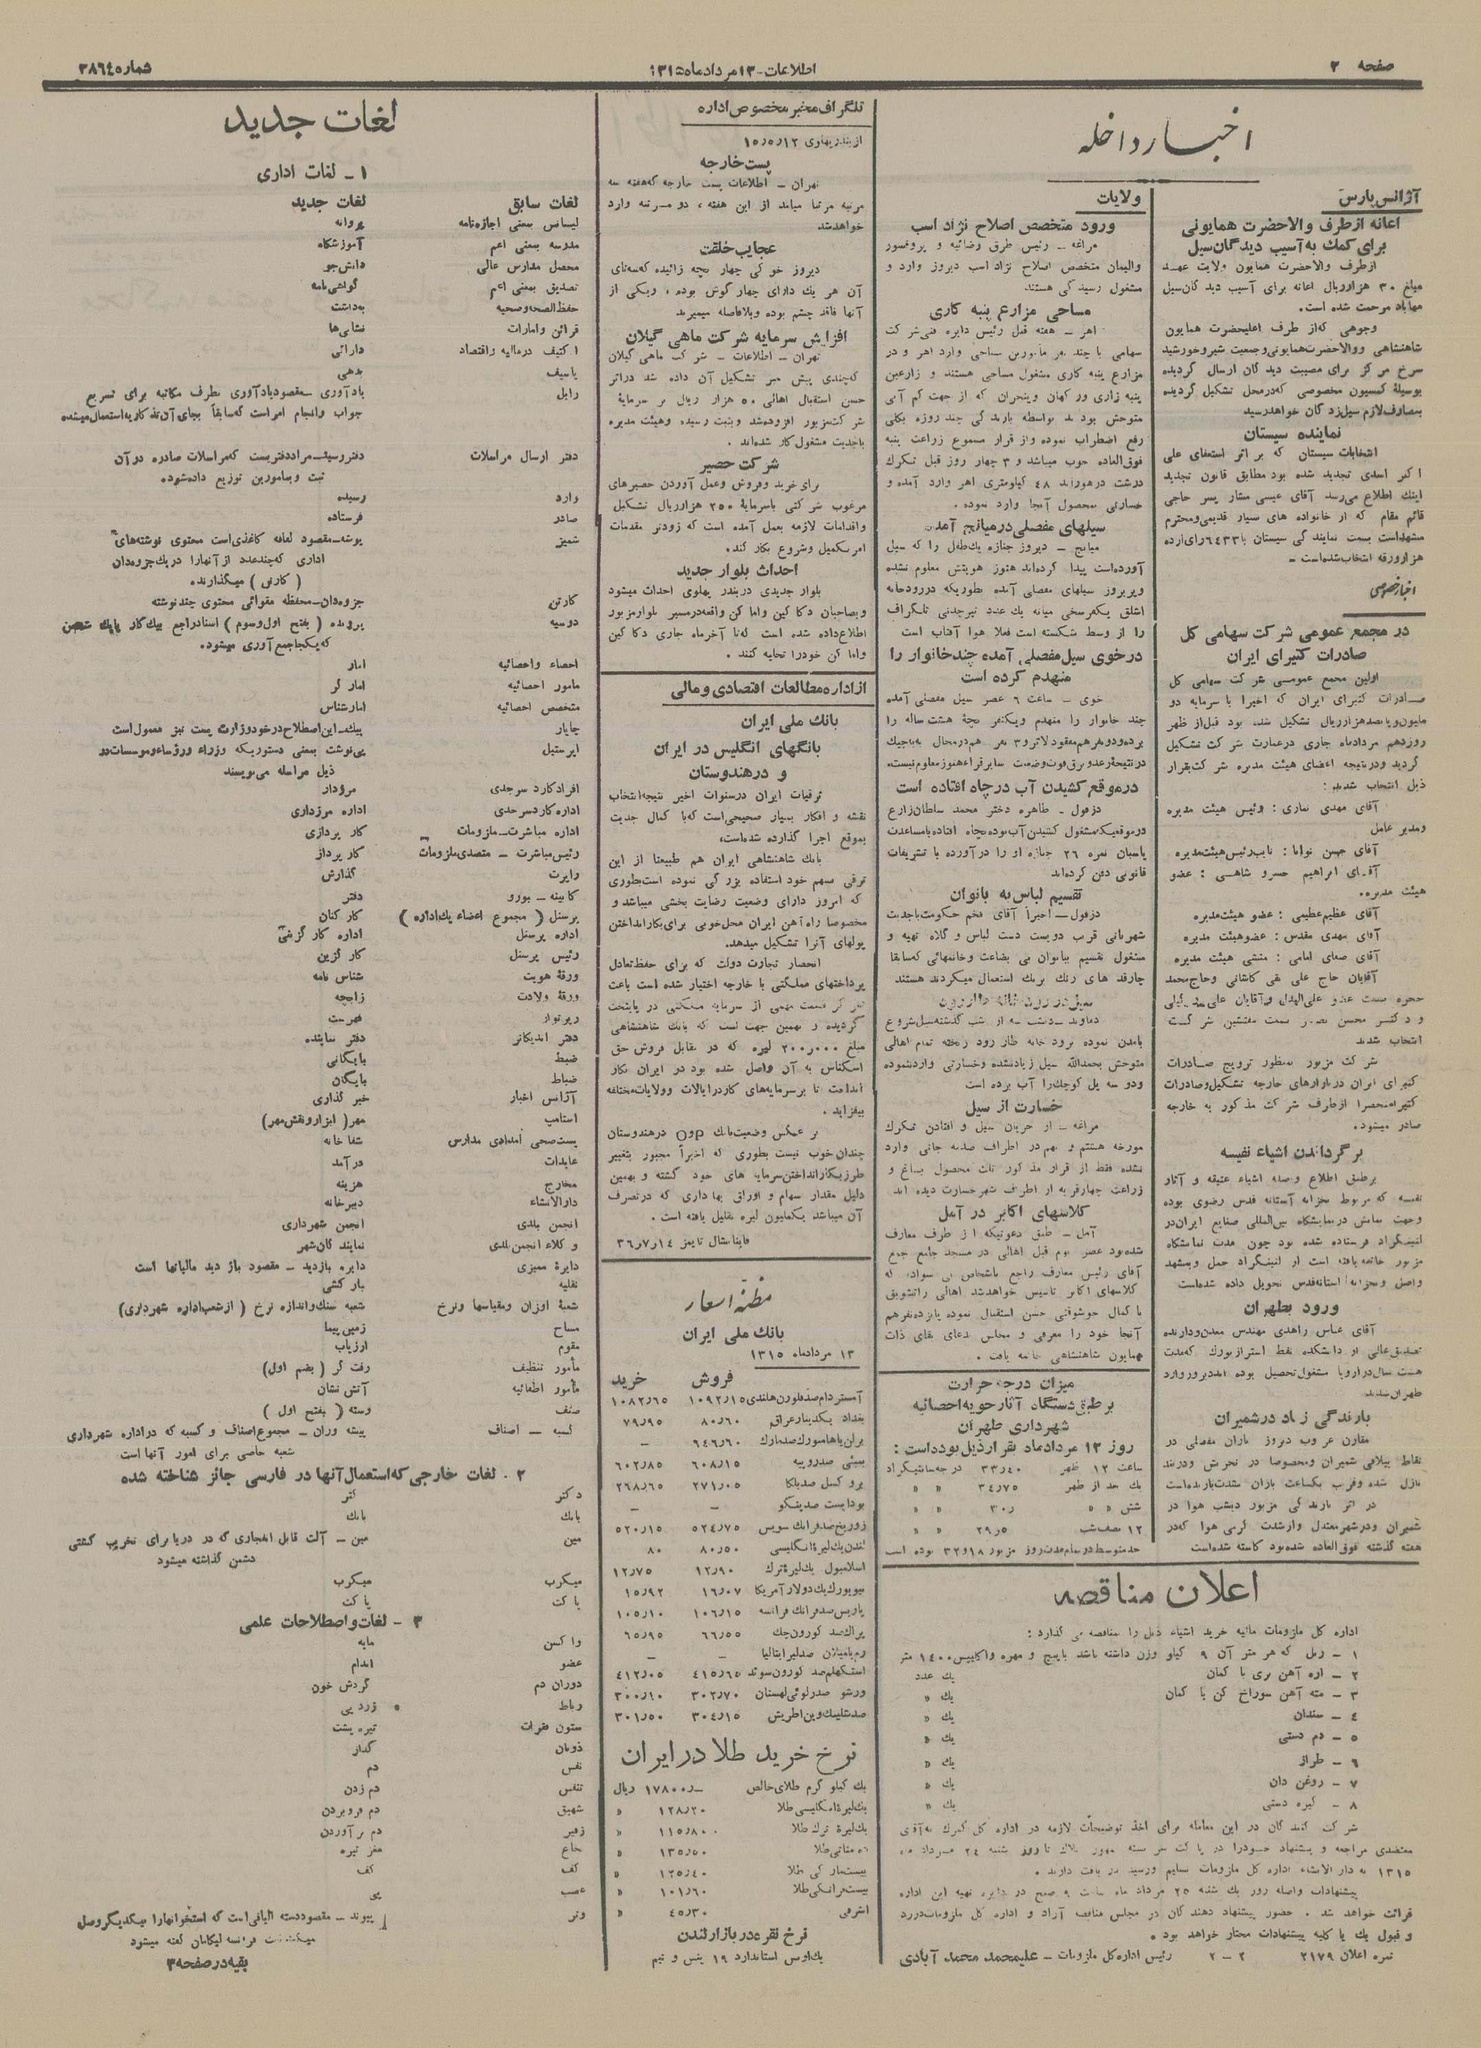 صفحه ۲
اطلاعات - ۱۳ مرداد ماه ۱۳۱۵
شماره ۳۸۶۴
اخبار داخله
آژانس پارس
اعانه از طرف والاحضرت همایونی
برای کمک به آسیب دیدگان سیل
از طرف والاحضرت همایون ولایت عهد
مبلغ ۳۰ هزار ریال اعانه برای آسیب دیدگان سیل
مهاباد مرحمت شده است.
وجوهی که از طرف اعلیحضرت همایون
شاهنشاهی و والاحضرت همایونی و جمعیت شیر و خورشید
سرخ مرکز برای مصیبت دیدگان ارسال گردیده
بوسیلهٔ کمسیون مخصوصی که در محل تشکیل گردیده
بمصارف لازم سیل زدگان خواهد رسید
نماینده سیستان
انتخابات سیستان که بر اثر استعفای علی
اکبر اسدی تجدید شده بود مطابق قانون تجدید
اینک اطلاع میرسد آقای عیسی مشار پسر حاجی
قائم مقام که از خانواده های بسیار قدیمی و محترم
مشهد است بسمت نمایندگی سیستان با ۶۴۳۳ رای از ده
هزار ورقه انتخاب شده است -
اخبار خصوصی
در مجمع عمومی شرکت سهامی کل
صادرات کتیرای ایران
اولین مجمع عمومی شرکت سهامی کل
صادرات کتیرای ایران که اخیرا با سرمایه دو
ملیون و پانصد هزار ریال تشکیل شده بود قبل از ظهر
روز دهم مرداد ماه جاری در عمارت شرکت تشکیل
گردید و در نتیجه اعضای هیئت مدیره شرکت بقرار
ذیل انتخاب شدند:
آقای مهدی نمازی : رئیس هیئت مدیره
و مدیر عامل
آقای حسن نوابا : نایب رئیس هیئت مدیره
آقای ابراهیم خسرو شاهی : عضو
هیئت مدیره.
آقای عظیم عظیمی : عضو هیئت مدیره
آقای مهدی مقدس : عضو هیئت مدیره
آقای صفای امامی : منشی هیئت مدیره
آقایان حاج علی نقی کاشانی و حاج محمد
انتخاب شدند
شرکت مزبور بمنظور ترویج صادرات
کتیرای ایران در بازارهای خارجه تشکیل و صادرات
کتیرا منحصرا از طرف شرکت مذکور به خارجه
صادر میشود.
برگرداندن اشیاء نفیسه
برطبق اطلاع واصله اشیاء عتیقه و آثار
نفیسه که مربوط بخزانه آستانه قدس رضوی بوده
وجهت نمایش در نمایشگاه بین المللی صنایع ایران در
لنینگراد فرستاده شده بود چون مدت نمایشگاه
مزبور خاتمه یافته است از لنینگراد حمل و بمشهد
واصل و بخزانه آستانه قدس تحویل داده شده است
ورود بطهران
آقای عباس زاهدی مهندس معدن و دارنده
تصدیق عالی از دانشکده نفط استرازبورک که مدت
هشت سال در اروپا مشغول تحصیل بوده اند دیروز وارد
طهران شدند
بارندگی زیاد در شمیران
مقارن غروب دیروز باران مفصلی در
نقاط ییلاقی شمیران و مخصوصا در تجریش و دربند
نازل شده و قریب یکساعت باران بشدت باریده است
در اثر بارندگی مزبور دیشب هوا در
شمیران و در شهر معتدل و از شدت گرمی هوا که در
هفته گذشته فوق العاده شده بود کاسته شده است
ولایات
ورود متخصص اصلاح نژاد اسب
مراغه - رئیس طرق رضائیه و پروفسور
والیمان متخصص اصلاح نژاد اسب دیروز وارد و
مشغول رسیدگی هستند
مساحی مزارع پنبه کاری
اهر - هفته قبل رئیس دایره فنی شرکت
سهامی با چند نفر مامورین مساحی وارد اهر و در
مزارع پنبه کاری مشغول مساحی هستند و زارعین
پنبه زاری ورکهان وینجران که از جهت کم آبی
متوحش بودند بواسطه بارندگی چند روزه بکلی
رفع اضطراب نموده و از قرار مسموع زراعت پنبه
فوق العاده خوب میباشد و ۳ چهار روز قبل تگرک
درشت در هوراند ۴۸ کیلومتری اهر وارد آمده و
خسارتی بمحصول آنجا وارد نموده.
سیلهای مفصلی در میانج آمده
میانج - دیروز جنازه یک طفل را که سیل
آورده است پیدا کرده اند هنوز هویتش معلوم نشده
و پریروز سیلهای مفصلی آمده بطوریکه در رودخانه
اشلق یکفرسخی میانه یک عدد تیر چدنی تلگراف
را از وسط شکسته است فعلا هوا آفتاب است
در خوی سیل مفصلی آمده چند خانوار را
منهدم کرده است
خوی - ساعت ۶ عصر سیل مفصلی آمده
چند خانوار را منهدم و یکنفر بچهٔ هشت ساله را
برده و دو نفر هم مفقودالاثر و ۳ نفر هم در محال به باجیک
در نتیجهٔ رعد و برق فوت وضعیت سایر قراء هنوز معلوم نیست.
در موقع کشیدن آب در چاه افتاده است
دزفول - طاهره دختر محمد سلطان زارع
در موقعیکه مشغول کشیدن آب بوده بچاه افتاده با مساعدت
پاسبان نمره ۲۶ جنازه او را درآورده با تشریفات
قانونی دفن کرده اند
تقسیم لباس به بانوان
دزفول - اخیراً آقای فخم حکومت با جدیت
شهربانی قریب دویست دست لباس و کلاه تهیه و
مشغول تقسیم ببانوان بی بضاعت و خانمهائی که سابقا
چارقد های رنک برنک استعمال میکردند هستند
بآمدن نموده برود خانه طار رود ریخته تمام اهالی
متوحش بحمدالله سیل زیاد نشده و خسارتی وارد ننموده
و دو سه پل کوچک را آب برده است
خسارت از سیل
مراغه - از جریان سیل و افتادن تگرک
مورخه هشتم و نهم در اطراف صدمه جانی وارد
نشده فقط از قرار مذکور بیک محصول بساغ و
زراعت چهار قریه از اطراف شهر خسارت دیده اند
کلاسهای اکابر در آمل
آمل - طبق دعوتیکه از طرف معارف
شده بود عصر نهم قبل اهالی در مسجد جامع جمع
آقای رئیس معارف راجع باشخاص بی سواد که
کلاسهای اکابر تاسیس خواهد شد اهالی را تشویق
با کمال خوشوقتی حسن استقبال نموده پانزده نفر هم
آنجا خود را معرفی و مجلس بدعای بقای ذات
همایون شاهنشاهی خاتمه یافت.
میزان درجه حرارت
بر طبق دستگاه آثار جویه احصائیه
شهرداری طهران
روز ۱۲ مرداد ماه بقرار ذیل بوده است :
ساعت ۱۲ ظهر ۳۳٫۴۰ درجه سانتیگراد
یک بعد از ظهر ۳۴٫۷۵ » »
شش » » ۳۰٫ » »
۱۲ نصف شب ۲۹٫۵ » »
حد متوسط در تمام مدت روز مزبور ۱۸ و ۳۲ بوده است
تلگراف مخبر مخصوص اداره
از بندر پهلوی ۱۵٫۵٫۱۲
پست خارجه
تهران - اطلاعات پست خارجه که هفته سه
مرتبه مرتبا میامد از این هفته، دو مرتبه وارد
خواهد شد
عجایب خلقت
دیروز خوکی چهار بچه زائیده که سه تای
آن هر یک دارای چهار گوش بوده، و یکی از
آنها فاقد چشم بوده و بلافاصله میمیرند
افزایش سرمایه شرکت ماهی گیلان
تهران - اطلاعات - شرکت ماهی گیلان
که چندی پیش خبر تشکیل آن داده شد در اثر
حسن استقبال اهالی ۵۰ هزار ریال بر سرمایهٔ
شرکت مزبور افزوده شد و بثبت رسیده و هیئت مدیره
با جدیت مشغول کار شده اند.
شرکت حصیر
برای خرید و فروش و عمل آوردن حصیرهای
مرغوب شرکتی با سرمایهٔ ۲۵۰ هزار ریال تشکیل
و اقدامات لازمه بعمل آمده است که زودتر مقدمات
امر تکمیل و شروع بکار کند.
احداث بلوار جدید
بلوار جدیدی در بندر پهلوی احداث میشود
و بصاحبان دکاکین و اماکن واقعه در مسیر بلوار مزبور
اطلاع داده شده است که تا آخر ماه جاری دکاکین
و اماکن خود را تخلیه کنند.
از اداره مطالعات اقتصادی و مالی
بانک ملی ایران
بانگهای انگلیس در ایران
و در هندوستان
ترقیات ایران در سنوات اخیر نتیجه انتخاب
نقشه و افکار بسیار صحیحی است که با کمال جدیت
بموقع اجرا گذارده شده است.
بانک شاهنشاهی ایران هم طبیعتا از این
ترقی سهم خود استفاده بزرگی نموده است بطوری
که امروز دارای وضعیت رضایت بخشی میباشد و
مخصوصا راه آهن ایران محل خوبی برای بکار انداختن
پولهای آنرا تشکیل میدهد.
انحصار تجارت دولت که برای حفظ تعادل
پرداختهای مملکتی با خارجه اختیار شده است باعث
تمرکز قسمت مهمی از سرمایه مملکتی در پایتخت
گردیده و بهمین جهت است که بانک شاهنشاهی
مبلغ ۲۰۰٫۰۰۰ لیره که در مقابل فروش حق
اسکناس به آن واصل شده بود در ایران بکار
انداخت تا بر سرمایه های کار در ایالات و ولایات مختلفه
بیفزاید.
بر عکس وضعیت بانک در هندوستان
چندان خوب نیست بطوری که اخیراً مجبور بتغییر
طرز بکار انداختن سرمایه های خود گشته و بهمین
دلیل مقدار سهام و اوراق بهاداری که در تصرف
آن میباشد یکملیون لیره تقلیل یافته است.
فاینانشال تایمز ۳۶٫۷٫۱۴
مظنه اسعار
بانک ملی ایران
۱۳ مرداد ماه ۱۳۱۵
فروش خرید
آمستردام صد فلورن هلندی ۱۰۹۲٫۱۵ ۱۰۸۲٫۶۵
بغداد یکدینار عراق ۸۰٫۶۰ ۷۹٫۹۵
برلن یا هامبورک صد مارک ۶۴۶٫۶۰ -
بمبئی صد روپیه ۶۰۸٫۱۵ ۶۰۲٫۸۵
بروکسل صد بلکا ۲۷۱٫۰۵ ۲۶۸٫۶۵
بوداپست صد پنگو - -
زوریخ صد فرانک سویس ۵۲۴٫۷۵ ۵۲۰٫۱۵
لندن یک لیرهٔ انگلیسی ۸۰٫۵۰ ۸۰
اسلامبول یک لیرهٔ ترک ۱۲٫۹۰ ۱۲٫۷۵
نیویورک یک دولار آمریکا ۱۶٫۰۷ ۱۵٫۹۲
پاریس صد فرانک فرانسه ۱۰۶٫۱۵ ۱۰۵٫۱۰
پراک صد کورون چک ۶۶٫۵۵ ۶۵٫۹۵
رم یا میلان صد لیر ایتالیا - -
استکهلم صد کورون سوئد ۴۱۵٫۶۵ ۴۱۲٫۰۵
ورشو صد زلوتی لهستان ۳۰۲٫۷۰ ۳۰۰٫۱۰
صد شلینک وین اطریش ۳۰۴٫۱۵ ۳۰۱٫۵۰
نرخ خرید طلا در ایران
یک کیلو گرم طلای خالص ۱۷۸۰۰٫- ریال
یک لیرهٔ انگلیسی طلا ۱۲۸٫۲۰ »
یک لیرهٔ ترک طلا ۱۱۵٫۸۰ »
ده مناتی طلا ۱۳۵٫۵۰ »
بیست مارکی طلا ۱۲۵٫۴۰ »
بیست فرانکی طلا ۱۰۱٫۶۰ »
اشرفی ۴۵٫۳۰ »
نرخ نقره در بازار لندن
یک اونس استاندارد ۱۹ پنس و نیم
لغات جدید
۱ - لغات اداری
لغات سابق لغات جدید
لیسانس بمعنی اجازه نامه پروانه
مدرسه بمعنی اعم آموزشگاه
محصل مدارس عالی دانش جو
تصدیق بمعنی اعم گواهی نامه
حفظ الصحه و صحیه بهداشت
قرائن و امارات نشانی ها
اکتیف در مالیه و اقتصاد دارائی
پاسیف بدهی
راپل یادآوری - مقصود یادآوری بطرف مکاتبه برای تسریع
جواب و انجام امر است که سابقاً بجای آن تذکاریه استعمال میشده
دفتر ارسال مراسلات دفتر رسید - مراد دفتریست که مراسلات صادره در آن
ثبت و بمامورین توزیع داده شود.
وارد رسیده
صادر فرستاده
شمیز پوشه - مقصود لفافه کاغذی است محتوی نوشته های
اداری که چند عدد از آنها را در یک جزوه دان
( کارتن ) میگذارند.
کارتن جزوه دان - محفظه مقوائی محتوی چند نوشته
دوسیه پرونده ( بفتح اول و سوم ) اسناد راجع بیک کار یا یک شخص
که یکجا جمع آوری میشود.
احصاء و احصائیه آمار
مامور احصائیه آمار گر
متخصص احصائیه آمارشناس
چاپار پیک - این اصطلاح در خود وزارت پست نیز معمول است
اپرستیل پی نوشت بمعنی دستوریکه وزراء و رؤساء و موسسات در
ذیل مراسله مینویسند
افراد کارد سرحدی مرزدار
اداره کارد سرحدی اداره مرزداری
اداره مباشرت - ملزومات کار پردازی
رئیس مباشرت - متصدی ملزومات کار پرداز
راپرت گذارش
کابینه - بورو دفتر
پرسنل ( مجموع اعضاء یک اداره ) کارکنان
اداره پرسنل اداره کار گزینی
رئیس پرسنل کار گزین
ورقهٔ هویت شناس نامه
ورقهٔ ولادت زایچه
رپرتوار فهرست
دفتر اندیکاتر دفتر نماینده
ضبط بایگانی
ضباط بایگان
آژانس اخبار خبر گذاری
استامپ مهر ( ابزار و نقش مهر)
پست صحی امدادی مدارس شفا خانه
عایدات درآمد
مخارج هزینه
دارالانشاء دبیرخانه
انجمن بلدی انجمن شهرداری
وکلاء انجمن بلدی نمایندگان شهر
دایرهٔ ممیزی دایره بازدید - مقصود باز دید مالیاتها است
نقلیه بار کشی
شعبهٔ اوزان و مقیاسها و نرخ شعبه سنک و اندازه نرخ ( از شعب اداره شهرداری)
مساح زمین پیما
مقوم ارزیاب
مأمور تنظیف رفت گر ( بضم اول)
مأمور اطفائیه آتش نشان
صنف رسته ( بفتح اول )
کسبه - اصناف پیشه وران - مجموع اصناف و کسبه که در اداره شهرداری
شعبه خاصی برای امور آنها است
۲ - لغات خارجی که استعمال آنها در فارسی جائز شناخته شده
دکتر دکتر
بانک بانک
مین مین - آلت قابل انفجاری که در دریا برای تخریب کشتی
دشمن گذاشته میشود
میکرب میکرب
پاکت پاکت
۳ - لغات و اصطلاحات علمی
واکسن مایه
عضو اندام
دوران دم گردش خون
رباط زردپی
ستون فقرات تیره پشت
ذوبان گداز
نفس دم
تنفس دم زدن
شهیق دم فرو بردن
زفیر دم برآوردن
نخاع مغز تیره
کف کف
عصب پی
وتر پیوند - مقصود دسته الیافی است که استخوانها را بیکدیگر وصل
میکند و بفرانسه لیگامان گفته میشود
بقیه در صفحه ۳
اعلان مناقصه
اداره کل ملزومات مالیه خرید اشیاء ذیل را بمناقصه می گذارد :
۱ - ریل که هر متر آن ۹ کیلو وزن داشته باشد با پیچ و مهره و اکلیپس ۱۴۰۰ متر
۲ - اره آهن بری با کمان یک عدد
۳ - مته آهن سوراخ کن با کمان یک »
۴ - سندان یک »
۵ - دم دستی یک »
۶ - طراز یک »
۷ - روغن دان یک »
۸ - گیره دستی یک »
شرکت کنندگان در این معامله برای اخذ توضیحات لازمه در اداره کل گمرک به آقای
معتضدی مراجعه و پیشنهاد خود را در پاکت سر بسته ممهور بلاک تا روز شنبه ۲۴ مرداد ماه
۱۳۱۵ به دار الانشاء اداره کل ملزومات تسلیم و رسید دریافت دارند.
پیشنهادات واصله روز یک شنبه ۲۵ مرداد ماه ساعت ۹ صبح در دایره تهیه این اداره
قرائت خواهد شد. حضور پیشنهاد دهندگان در مجلس مناقصه آزاد و اداره کل ملزومات در رد
و قبول یک یا کلیه پیشنهادات مختار خواهد بود.
نمره اعلان ۲۱۷۹ ۲-۲ رئیس اداره کل ملزومات - علیمحمد محمد آبادی